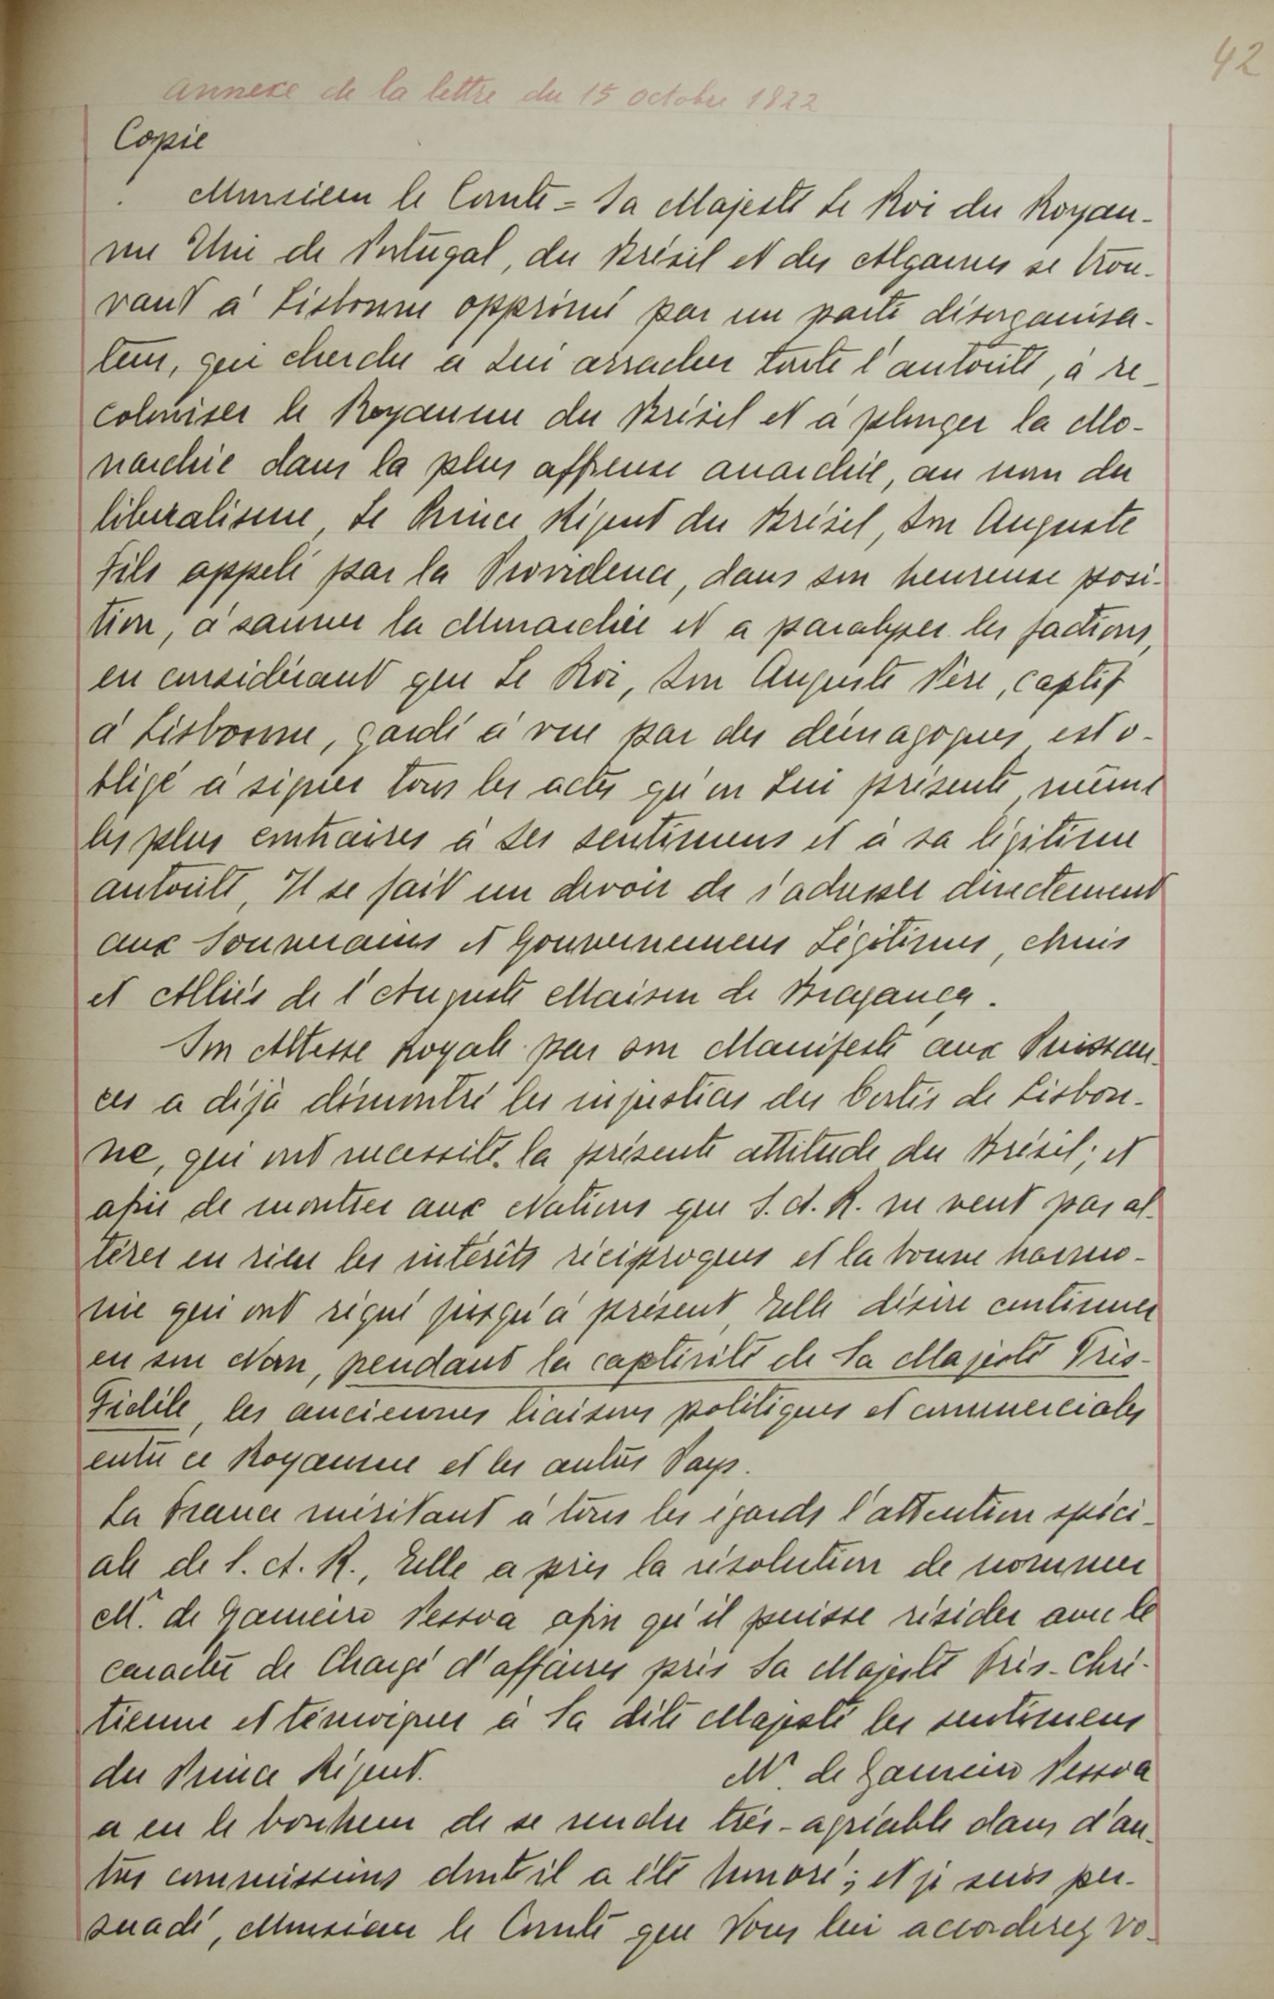 42
annexe de la lettre du 15 octobre 1822
Copie
Monsieur le Comte = Sa Majesté Le Roi du Royau-
me Uni de Portugal, du Brésil et des Algarves se trou-
vant à Lisbonne opprimé par un parti désorganisa-
teur, qui cherche à Lui arracher toute l'autorité, à re-
coloniser le Royaume du Brésil et à plonger la Mo-
narchie dans la plus affreuse anarchie, au nom du
liberalisme, Le Prince Régent du Brésil, Son Auguste
Fils appelé par la Providence, dans son heureuse posi-
tion, à sauver la Monarchie et a paralyser les factions,
en considérant que Le Roi, Son Auguste Père, captif
à Lisbonne, gardé à vue par des démagogues est o-
bligé à signer tous les actes qu'on Lui présente, même
les plus contraires à Ses sentimens et à sa légitime
autorité, Il se fait un devoir de s'adresser directement
aux Souverains et Gouvernemens Légitimes, Amis
et Alliés de l'Auguste Maison de Bragança.
Son Altesse Royale par son Manifeste aux Puissan-
ces a déjà démontré les injustices des Cortès de Lisbon-
ne, qui ont necessité la présente attitude du Brésil; et
afin de montrer aux Nations que S. A. R. ne veut pas al-
térer en rien les intérêts réciproques et la bonne harmo-
nie qui ont régné jusqu'à présent, Elle désire continuer
en son Nom, pendant la captivité de Sa Majesté Très-
Fidèle, les anciennes liaisons politiques et commerciales
entre ce Royaume et les autres Pays.
La France méritant à tous les égards l'attention spéci-
ale de S. A. R., Elle a pris la résolution de nommer
Mr. de Gameiro Pessoa afin qu'il puisse résider avec le
caractère de Chargé d'affaires près Sa Majesté Très-Chré-
tienne et témoigner à Sa dite Majesté les sentimens
du Prince Régent. Mr. de Gameiro Pessoa
a eu le bonheur de se rendre très-agréable dans d'au-
tres commissions dont il a été honoré; et je suis per-
suadé, Monsieur le Comte que Vous lui accorderez vo-